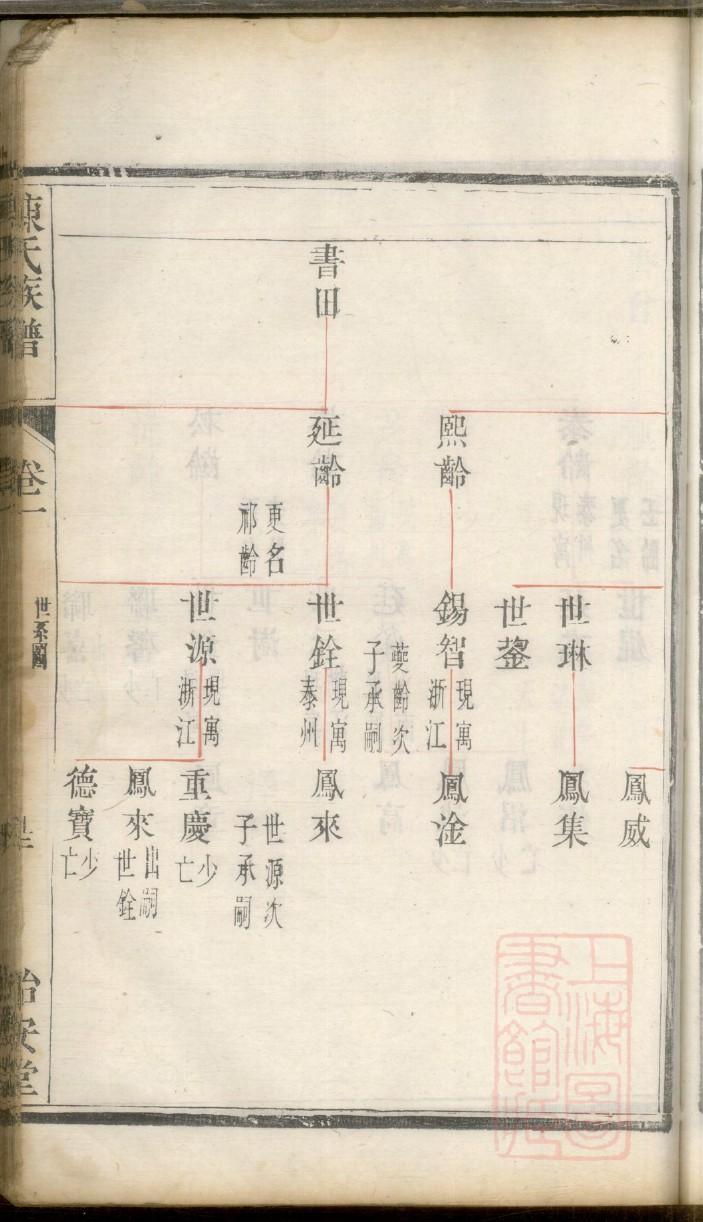 書田
熙齡
延齡
更名
祁齡
世琳
世鋆
錫智
現寓
浙江
夔齡次
子承嗣
世銓
現寓
泰州
世源
現寓
浙江
鳳威
鳳集
鳳淦
鳳來
世源次
子承嗣
重慶
少
亡
鳳來
出嗣
世銓
德寶
少
亡
陳氏族譜
卷一
世系圖
怡安堂
上海圖
書館藏